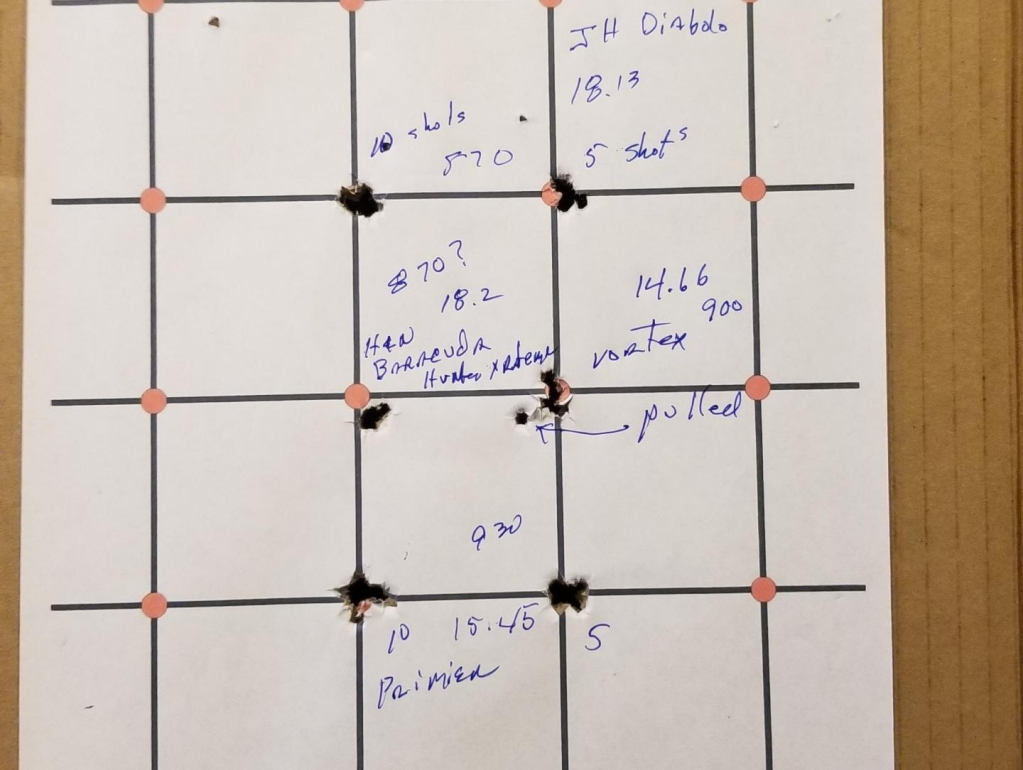 JH Diabolo
18.13
5 shots
10 shots
870
870?
18.2
H&N
Baracuda
Hunter Xtreme
14.66
900
Vortex
pulled
930
10 15.45
Primier
5